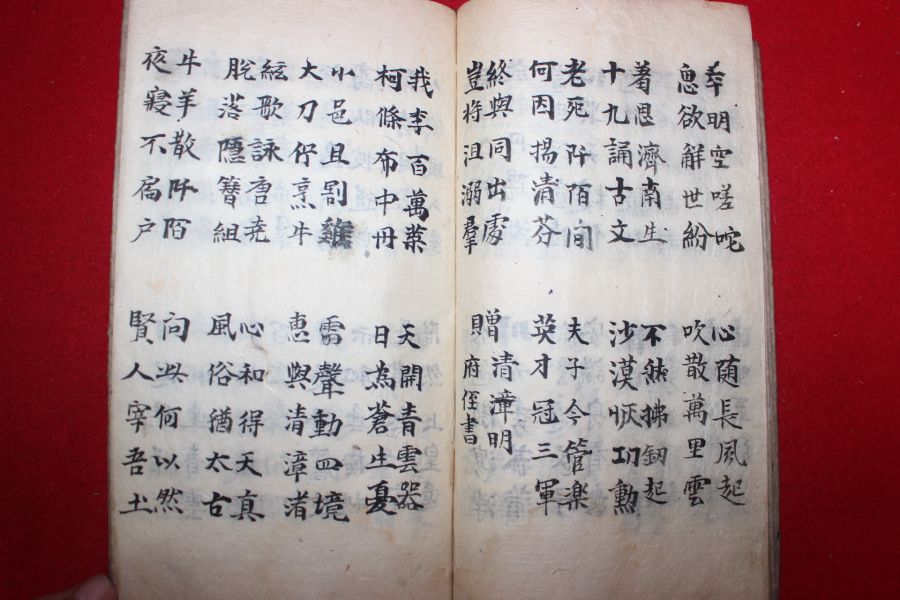 平明空嗟咤
思欲解世紛
心随長風起
吹散萬里雲
着恩濟南生
十九誦古文
不然拂釰起
沙漠恢功勳
老死阡陌间
何因揚清芬
夫子今管楽
英才冠三軍
終與同出處
豈将沮溺羣
增清漳明
府侄書
我李百萬葉
柯條布中冊
天開青雲器
日為蒼生憂
小邑且割雞
大刀佇烹牛
雷聲動四境
恵與清漳渚
絃歌詠唐堯
脫落隱簪組
心和得天真
風俗猶太古
牛羊散阡陌
夜寝不扃户
问此何以然
賢人宰吾土